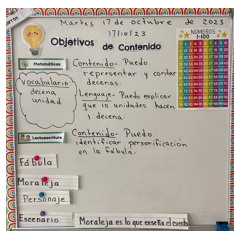 Martes 17 de octubre de 2023
17/10/23
Objetivos de Contenido
NÚMEROS
1-100
Matemáticas
Contenido- Puedo
representar y contar
decenas.
Vocabulario:
decena
unidad
Lenguaje- Puedo explicar
que 10 unidades hacen
1 decena.
Lectoescritura
Contenido- Puedo
identificar personificación
en la fábula.
Fábula
Moraleja
Personaje
Escenario
Moraleja es lo que enseña el cuento